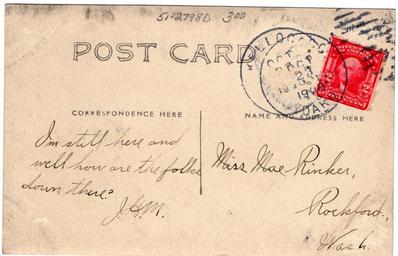 51-2798D 300
POST CARD
KELLOGG
IDAHO
CORRESPONDENCE HERE
NAME AND ADDRESS HERE
I'm still here and
well how are the folks
down there?
J.H.M.
Miss Mae Rinker,
Rockford,
Wash.